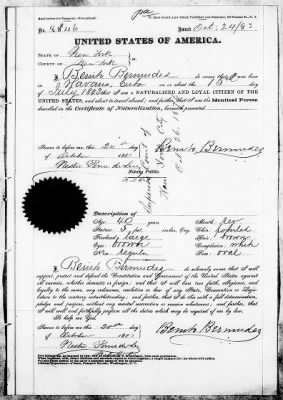 No. 8846 Issued Oct. 24/83
UNITED STATES OF AMERICA.
STATE OF New York
COUNTY OF New York
I Benito Bermudes do swear that I was born
in Havana, Cuba on the
July 1843 that I am a NATURALIZED AND LOYAL CITIZEN OF THE
UNITED STATES, and about to travel abroad; and further, that I am the Identical Person
described in the Certificate of Naturalization, herewith presented.
Sworn to before me this 20th day
of October 188
Benito Bermudes
Notary Public
Description of
Age: 40 years Mouth: reg
Stature: 5 feet inches, Eng. Chin:
Forehead: large Hair: brown
Eyes: brown Complexion:
Nose: regular Face: oval
I Benito Bermudes do solemnly swear that I will
support, protect and defend the Constitution and Government of the United States against
all enemies, whether domestic or foreign; and that I will bear true faith, allegiance, and
loyalty to the same, any ordinance, resolution or law of any State, Convention or Legis-
lature to the contrary notwithstanding; and further, that I do this with a full determination,
pledge and purpose, without any mental reservation or evasion whatsoever; and further, that
I will well and faithfully perform all the duties which may be required of me by law.
So help me God.
Sworn to before me this 20th day
of October 188
Benito Bermudes